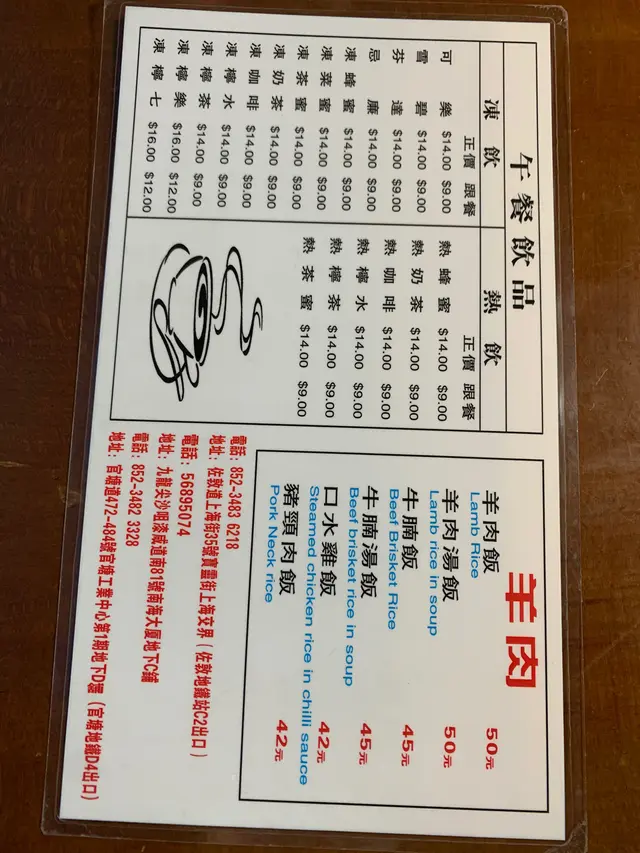 午餐飲品
凍飲 正價 跟餐
可樂 $14.00 $9.00
雪碧 $14.00 $9.00
芬達 $14.00 $9.00
忌廉 $14.00 $9.00
凍蜂蜜 $14.00 $9.00
凍菜蜜 $14.00 $9.00
凍茶蜜 $14.00 $9.00
凍奶茶 $14.00 $9.00
凍咖啡 $14.00 $9.00
凍檸水 $14.00 $9.00
凍檸茶 $14.00 $9.00
凍檸樂 $16.00 $12.00
凍檸七 $16.00 $12.00
熱飲 正價 跟餐
熱蜂蜜 $14.00 $9.00
熱奶茶 $14.00 $9.00
熱咖啡 $14.00 $9.00
熱檸水 $14.00 $9.00
熱檸茶 $14.00 $9.00
熱茶蜜 $14.00 $9.00
羊肉
羊肉飯 50元
Lamb Rice
羊肉湯飯 50元
Lamb rice in soup
牛腩飯 45元
Beef Brisket Rice
牛腩湯飯 45元
Beef brisket rice in soup
口水雞飯 42元
Steamed chicken rice in chilli sauce
豬頸肉飯 42元
Pork Neck rice
電話：852-3483 6218
地址：佐敦道上海街35號寶靈街上海交界（佐敦地鐵站C2出口）
電話：56895074
地址：九龍尖沙咀漆咸道南81號南海大厦地下C鋪
電話：852-3482 3328
地址：官塘道472-484號官塘工業中心第1期地下D鋪（官塘地鐵D4出口）